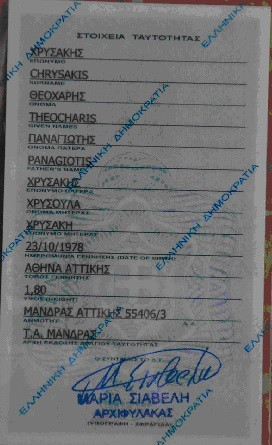 ΕΛΛΗΝΙΚΗ ΔΗΜΟΚΡΑΤΙΑ
ΣΤΟΙΧΕΙΑ ΤΑΥΤΟΤΗΤΑΣ
ΧΡΥΣΑΚΗΣ
ΕΠΩΝΥΜΟ
CHRYSAKIS
SURNAME
ΘΕΟΧΑΡΗΣ
ΟΝΟΜΑ
THEOCHARIS
GIVEN NAMES
ΠΑΝΑΓΙΩΤΗΣ
ΟΝΟΜΑ ΠΑΤΕΡΑ
PANAGIOTIS
FATHER'S NAME
ΧΡΥΣΑΚΗΣ
ΕΠΩΝΥΜΟ ΠΑΤΕΡΑ
ΧΡΥΣΟΥΛΑ
ΟΝΟΜΑ ΜΗΤΕΡΑΣ
ΧΡΥΣΑΚΗ
ΕΠΩΝΥΜΟ ΜΗΤΕΡΑΣ
23/10/1978
ΗΜΕΡΟΜΗΝΙΑ ΓΕΝΝΗΣΗΣ (DATE OF BIRTH)
ΑΘΗΝΑ ΑΤΤΙΚΗΣ
ΤΟΠΟΣ ΓΕΝΝΗΣΗΣ
1,80
ΥΨΟΣ (HEIGHT)
ΜΑΝΔΡΑΣ ΑΤΤΙΚΗΣ 55406/3
ΔΗΜΟΤΗΣ
Τ.Α. ΜΑΝΔΡΑΣ
ΑΡΧΗ ΕΚΔΟΣΗΣ ΔΕΛΤΙΟΥ ΤΑΥΤΟΤΗΤΑΣ
ΜΑΡΙΑ ΣΙΑΒΕΛΗ
ΑΡΧΙΦΥΛΑΚΑΣ
(ΥΠΟΓΡΑΦΗ - ΣΦΡΑΓΙΔΑ)
ΕΛΛΗΝΙΚΗ ΔΗΜΟΚΡΑΤΙΑ
ΕΛΛΗΝΙΚΗ ΔΗΜΟΚΡΑΤΙΑ
ΕΛΛΗΝΙΚΗ ΔΗΜΟΚΡΑΤΙΑ